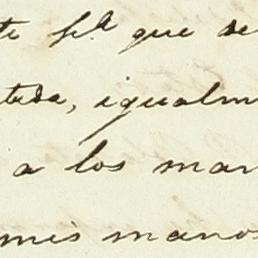 te fhã que se
tada, igualm
a los man
mis manos